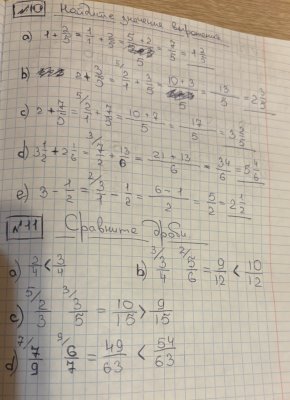 №10 Найдите значение выражения
a) 1 + 2/5 = 1/1 + 2/5 = 5+2/5 = 7/5 = 1 2/5
b) 2 + 3/5 = 2/1 + 3/5 = 10+3/5 = 13/5 = 2 3/5
c) 2 + 7/5 = 2/1 + 7/5 = 10+7/5 = 17/5 = 3 2/5
d) 3 1/2 + 2 1/6 = 7/2 + 13/6 = 21+13/6 = 34/6 = 5 4/6
e) 3 - 1/2 = 3/1 - 1/2 = 6-1/2 = 5/2 = 2 1/2
№11 Сравните дроби
a) 2/4 < 3/4 b) 3/4 5/6 = 9/12 < 10/12
c) 2/3 3/5 = 10/15 > 9/15
d) 7/9 6/7 = 49/63 < 54/63